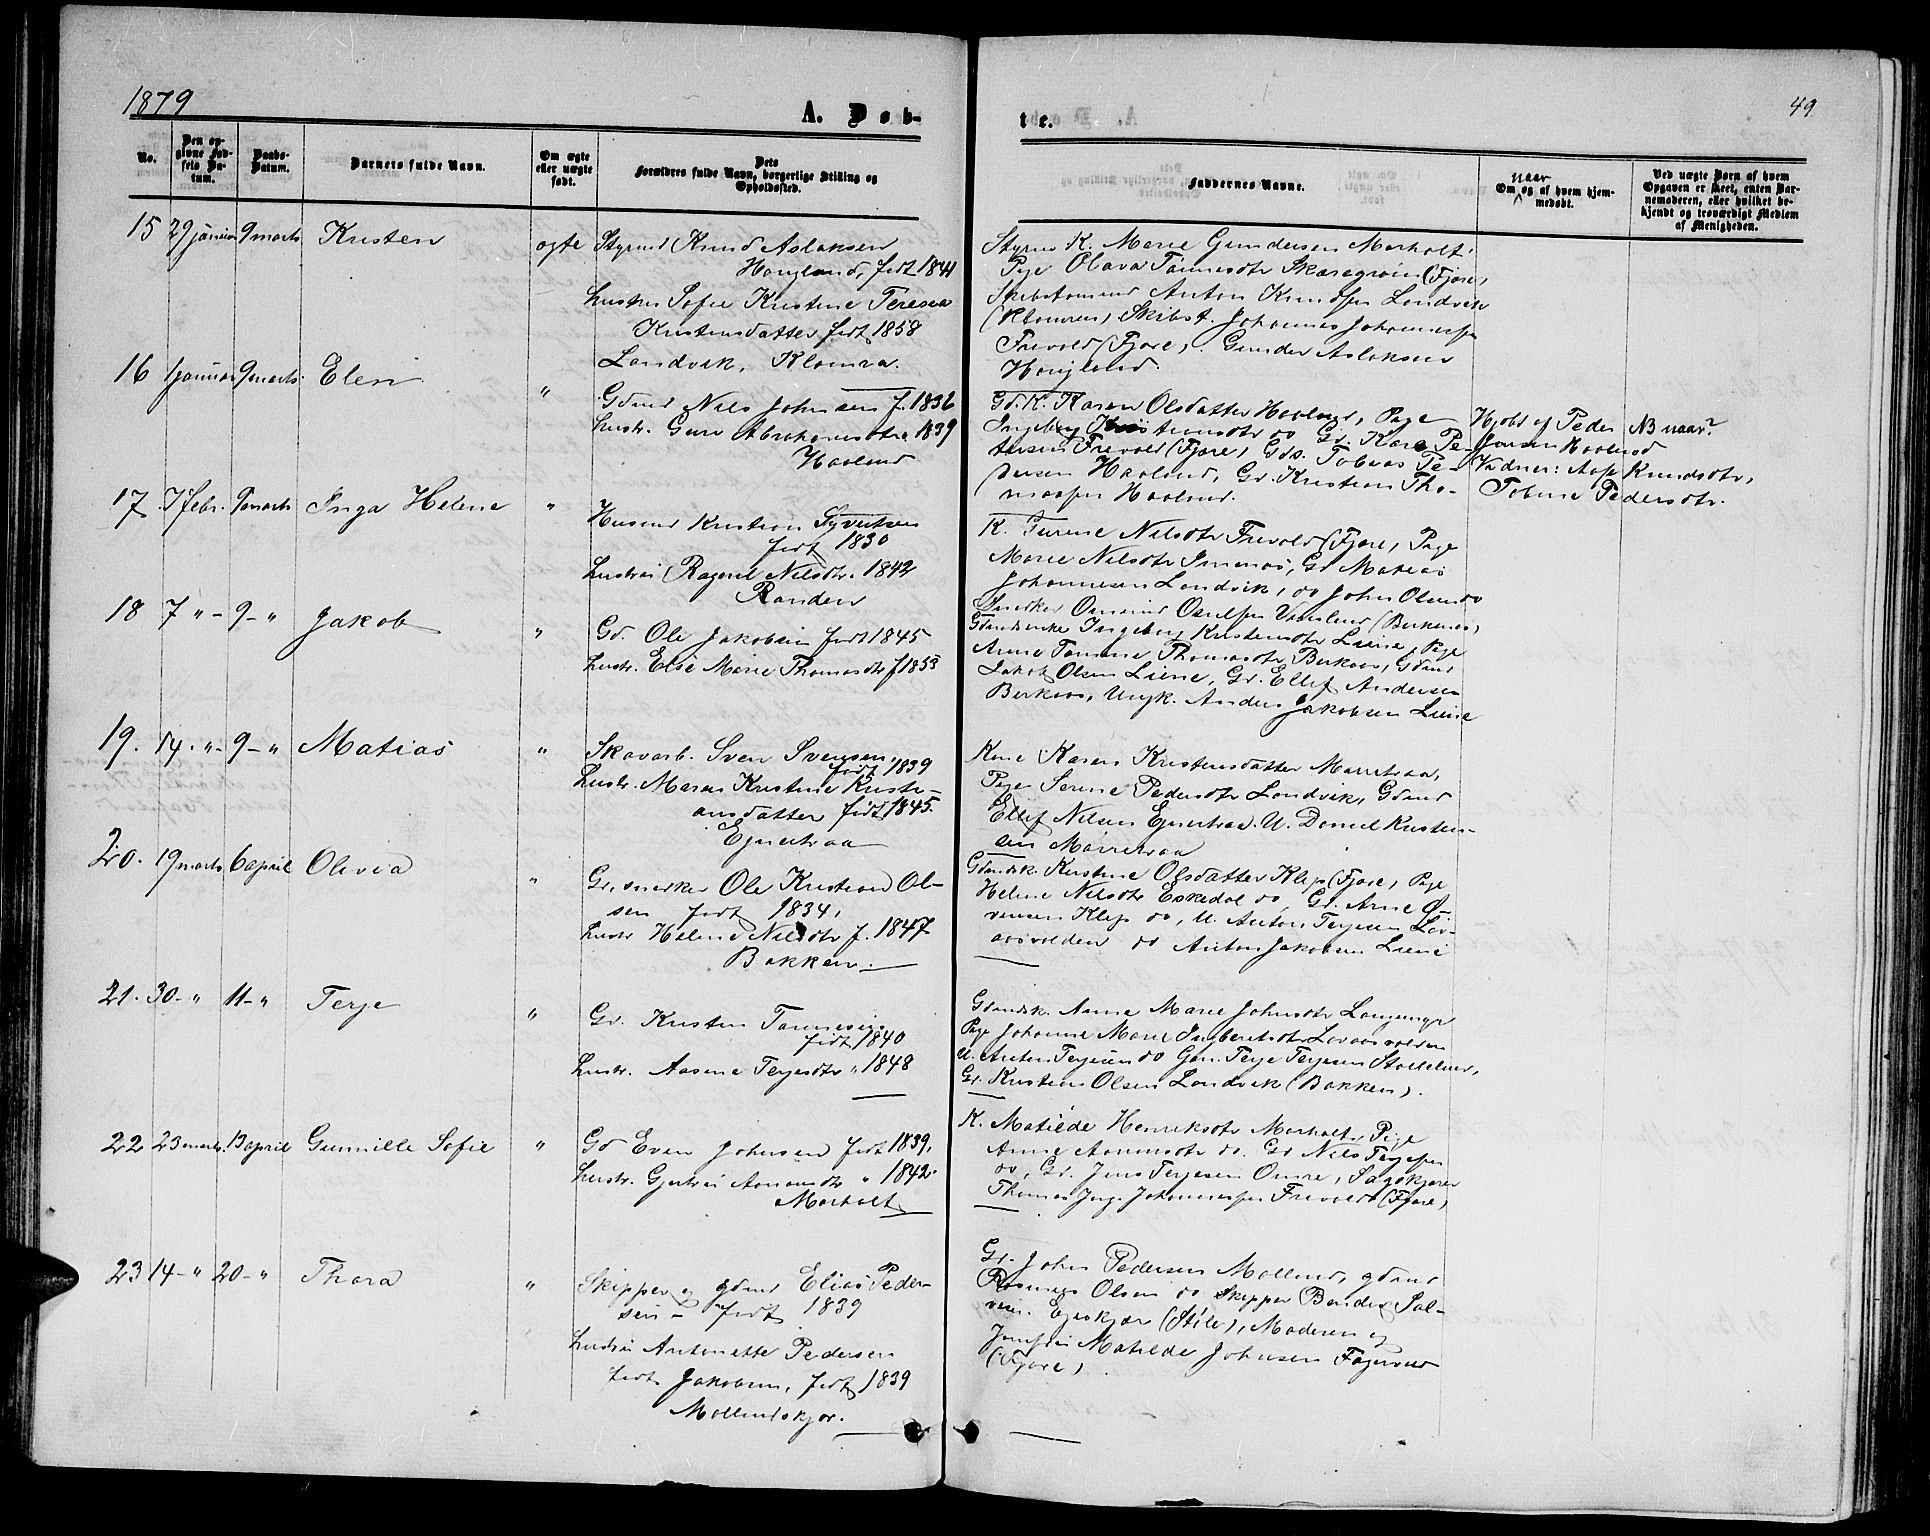 1879
A. Døb-
te.
49
No.
Den op-
givne Fød-
sels Da-
tum.
Daabs-
Datum.
Barnets fulde Navn.
Om ægte
eller uægte
født.
Dets
Forældres fulde Navn, borgerlige Stilling og
Opholdssted.
Faddernes Navne.
naar
Om og af hvem hjem-
medøbt.
Ved uægte Børn af hvem
Opgaven er skeet, enten Bar-
nemoderen, eller hvilket be-
kjendt og troværdigt Medlem
af Menigheden.
15 29 januar 9 marts Kristen ogte Styrmd Knud Aslaksen
Hougland, født 1841
hustru Sofie Kristine Teresia
Kristensdatter født 1858
Landvik, Klomra.
Styrm. K. Marie Gundersen Morholt,
Pige Olava Tønnesdtr Skaregrøn (Fjære,
Skibstømmd Anton Knudsen Landvik
(Klomren) Skibst. Johannes Johannesen
Frevold (Fjære), Gunder Aslaksen
Hougland.
16 1 januar 9 marts Elen "
Gdmd Nils Johnsen f. 1832
hustr. Guro Abrahamsdtr 1839
Haaland
Gd. K. Karen Olsdatter Haaland, Pige
tersen Frevold (Fjære, Gds. Tobias Pe-
dersen Haaland, Gr. Kristian Tho-
massen Haaland.
Hjdbt af Peder
Jensen Haaland
Vidner: Aase Knudsdtr,
Tobine Pedersdtr.
NB naar?
17 7 febr. 9 marts Inga Helene "
Husmd Kristian Syvertsen
født 1830
hustru Ragnil Nilsdtr. 1842
Randen
K. Gurine Nilsdtr Frevold (Fjære, Pige
Marie Nilsdtr Imenes, Gd Matias
Johannesen Landvik, do John Olsen do
18 7 " - 9 - " Jakob "
Gd. Ole Jakobsen født 1845
hustr. Else Marie Thomasdtr f 1853
Ingeborg Kristensdtr Liene, Pige
Anne Tomine Thomasdtr Birkaas, Gdmd
Jakob Olsen Liene, Gr. Ellef Andersen
Birkaas, Ungk. Anders Jakobsen Liene
19. 14. " - 9 - " Matias "
Skovarb. Sven Svensen,
født 1839
hustr. Maren Kristine Kristi-
ansdatter født 1845.
Egnetraa
Kone Karen Kristensdatter Morretraa,
Pige Serine Pedersdtr Landvik, Gdmd
Ellef Nilsen Egnetraa. U. Daniel Kristen-
sen Morretraa
20. 19 marts 6 april Olivia "
Gr, snerker Ole Kristian Ol-
sen født 1834,
hustr Helene Nilsdtr f. 1847
Bakken.
Gdmdsk. Kirstine Olsdatter Klep (Fjære, Pige
Helene Nilsdtr Eskedal do, Gr. Arne Ø-
vensen Klep do, U. Anton Terjesen Lov-
aasvolden do Anton Jakobsen Liene
21. 30 - " 11 - " Terje "
Gr. Kristen Tønnesen
født 1840
hustr. Aasine Terjesdtr " 1848
Gdmdsk. Anne Marie Johnsdtr Langemyr
Pige Johanne Marie Ingbretsdtr Lovaasvolden
U. Anton Terjesen do Gm. Terje Terjesen
Gr. Kristian Olsen Landvik (Bakken).
22 23 marts. 13 april Gunnille Sofie "
Gd Even Johnsen født 1839,
hustr. Gjertrui Aanonsdtr " 1842.
Morholt
K. Matilde Henriksdtr Morholt, Pige
Anne Aanonsdtr do. Gr Nils Terjesen
do, Gr. Jens Terjesen Omre, Sagskjærer
Thomas Johannessen Frevold (Fjære)
23 14 - " 20 - " Thora "
Skipper og gdmd Elias Peder-
sen - født 1839
hustru Antonette Pedersen
født Jakobsen, født 1839
Mollandskjær.
Gr. John Pedersen Molland, gdmd
Rasmus Olsen do Skipper Bendix Sal-
vesen Egeskjær (Stile), Moderen og
Jomfru Matilde Johnsen Fagervold
(Fjære).